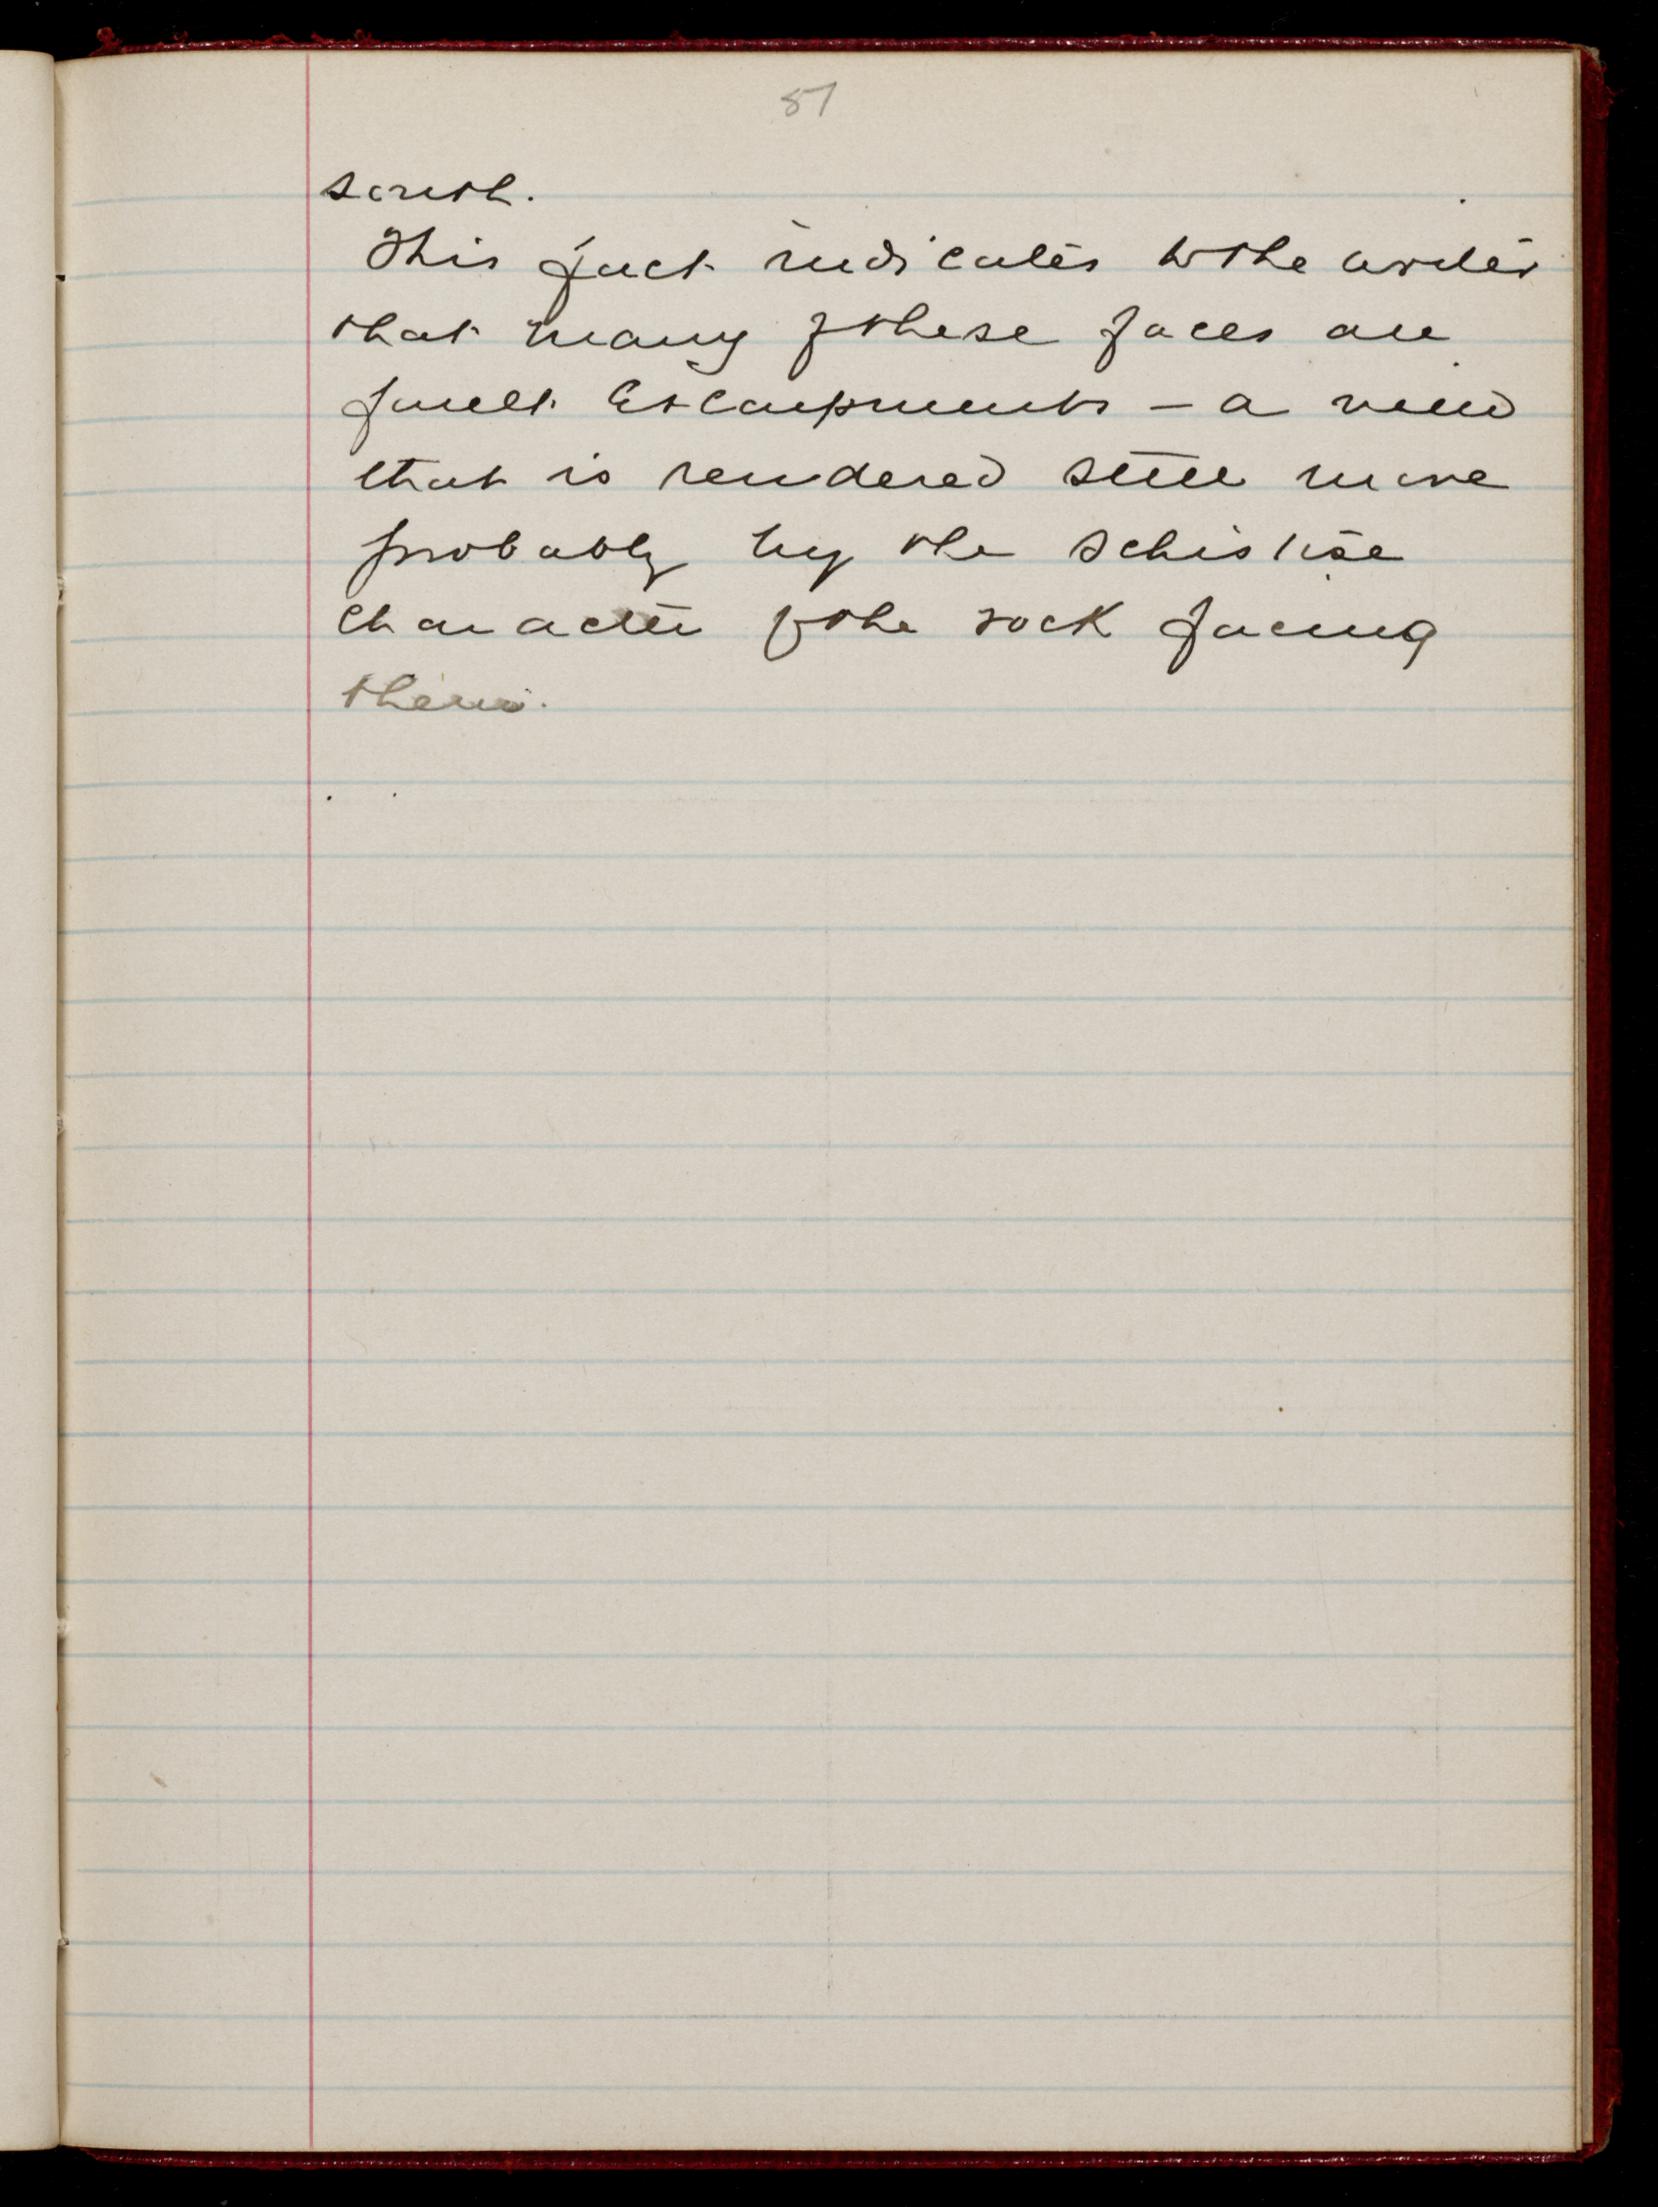 87
south.
This fact indicates to the writer
that many of these faces are
fault escarpments – a view
that is rendered still more
probably by the schistose
character of the rock facing
them.